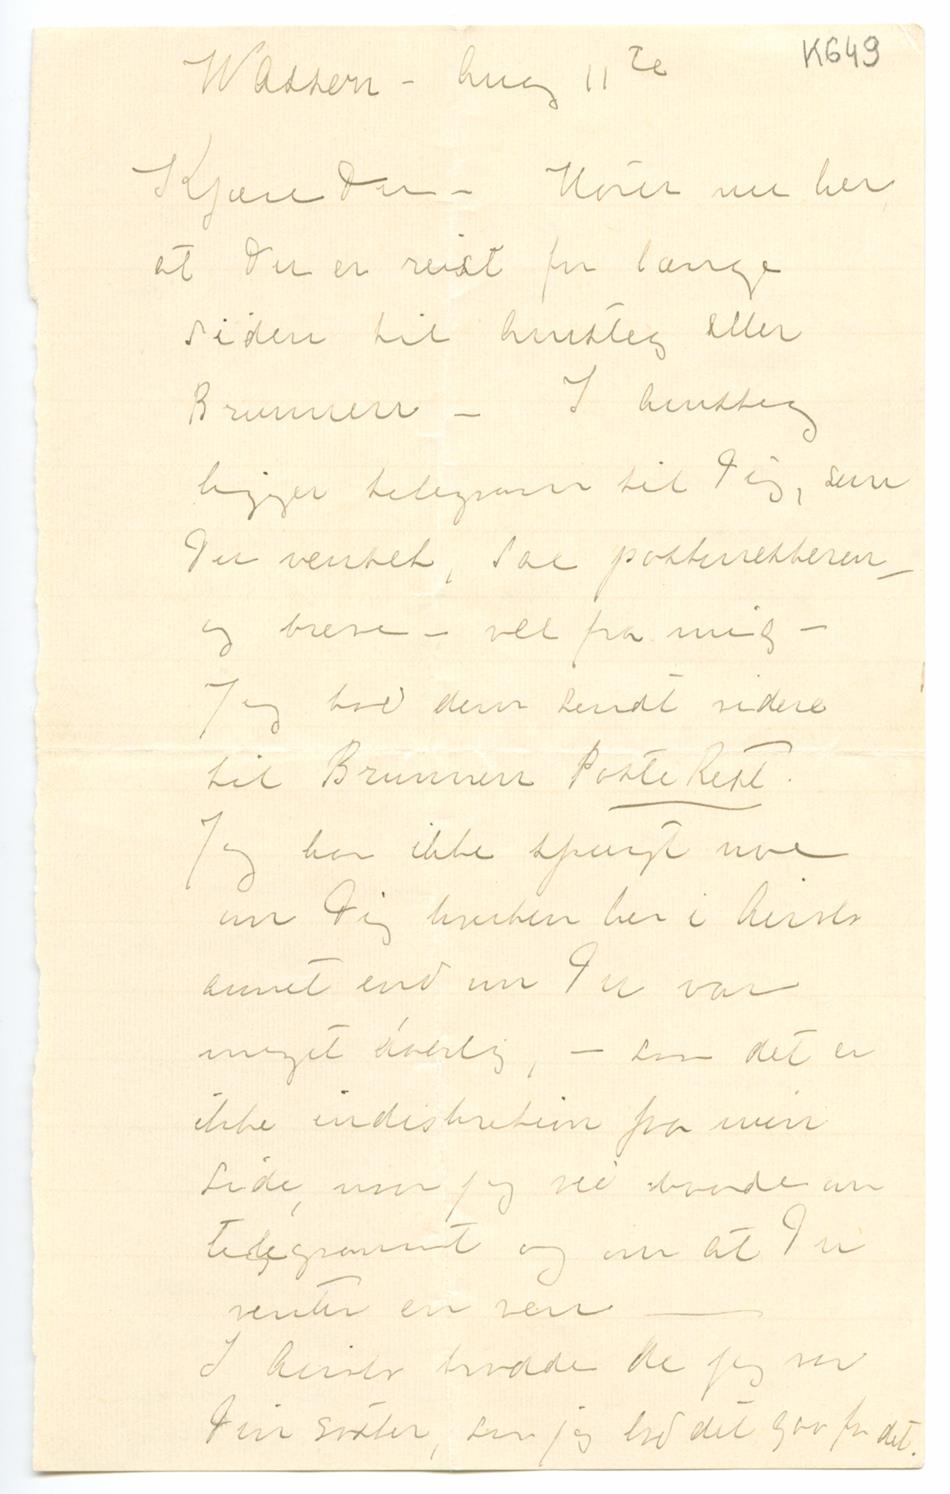 K649
Wassen – Aug 11te
Kjære Du – Hører nu her,
at Du er reist for længe
siden til Amsteg eller
Brunnen – I Amsteg
ligger telegram til Dig, som
Du ventet, sae postmesteren –
og breve – vel fra mig –
Jeg bad dem sendt videre
til Brunnen Poste Rest.
Jeg har ikke spurgt noe
om Dig hverken her i Airolo
annet end om Du var
meget daarlig, – som det er
ikke indiskretion fra min
side, naar jeg ved baade om
telegrammet og om at Du
venter en ven —
I Airolo trodde de jeg var
Din søster, saa jeg lod det gaa for det.